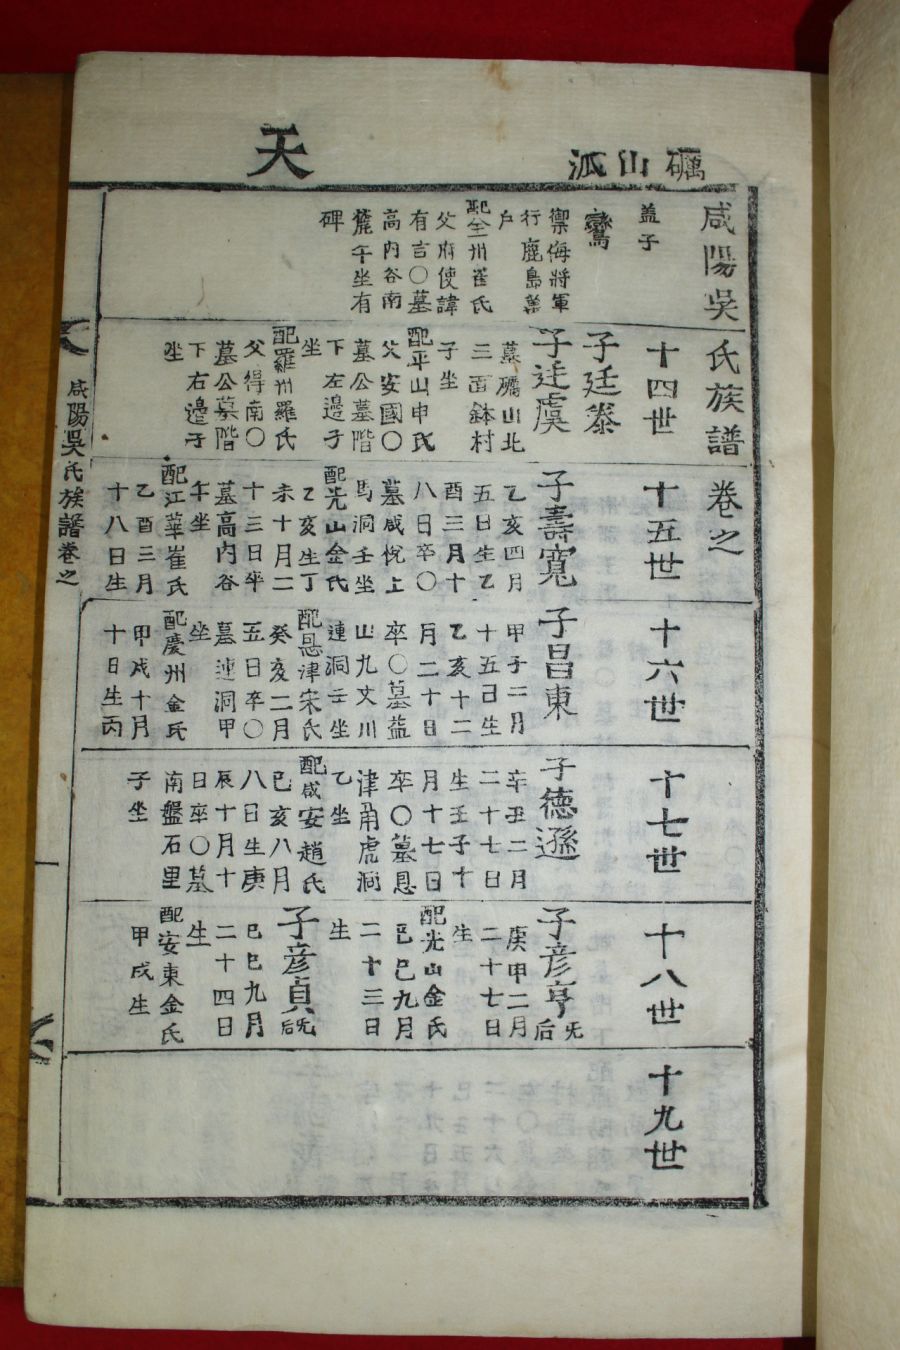 天
礪山派
咸陽吳氏族譜卷之
盖子
鸞
禦侮將軍
行鹿島萬
戶
配全州崔氏
父府使諱
有吉〇墓
高內谷南
麓午坐有
碑
十四世
子廷泰
子廷虞
墓礪山北
三面鉢村
子坐
配平山申氏
父安國〇
墓公墓階
下左邊子
坐
配羅州羅氏
父得南〇
墓公墓階
下右邊子
坐
十五世
子壽寬
乙亥四月
五日生乙
酉三月十
八日卒〇
墓咸悅上
馬洞壬坐
配光山金氏
乙亥生丁
未十月二
十三日卒
墓高內谷
午坐
配江華崔氏
乙酉三月
十八日生
十六世
子昌東
甲子二月
十五日生
乙亥十二
月二十日
卒〇墓益
山九文川
連洞壬坐
配恩津宋氏
癸亥二月
五日卒〇
墓連洞甲
坐
配慶州金氏
甲戌十月
十日生丙
十七世
子德遜
辛丑二月
二十七日
生壬子十
月十七日
卒〇墓恩
津角虎洞
乙坐
配咸安趙氏
己亥八月
八日生庚
辰十月十
日卒〇墓
南盤石里
子坐
十八世
子彦亨
旡后
庚甲二月
二十七日
生
配光山金氏
己巳九月
二十三日
生
子彦貞
旡后
己巳九月
二十四日
生
配安東金氏
甲戌生
十九世
咸陽吳氏族譜卷之
一